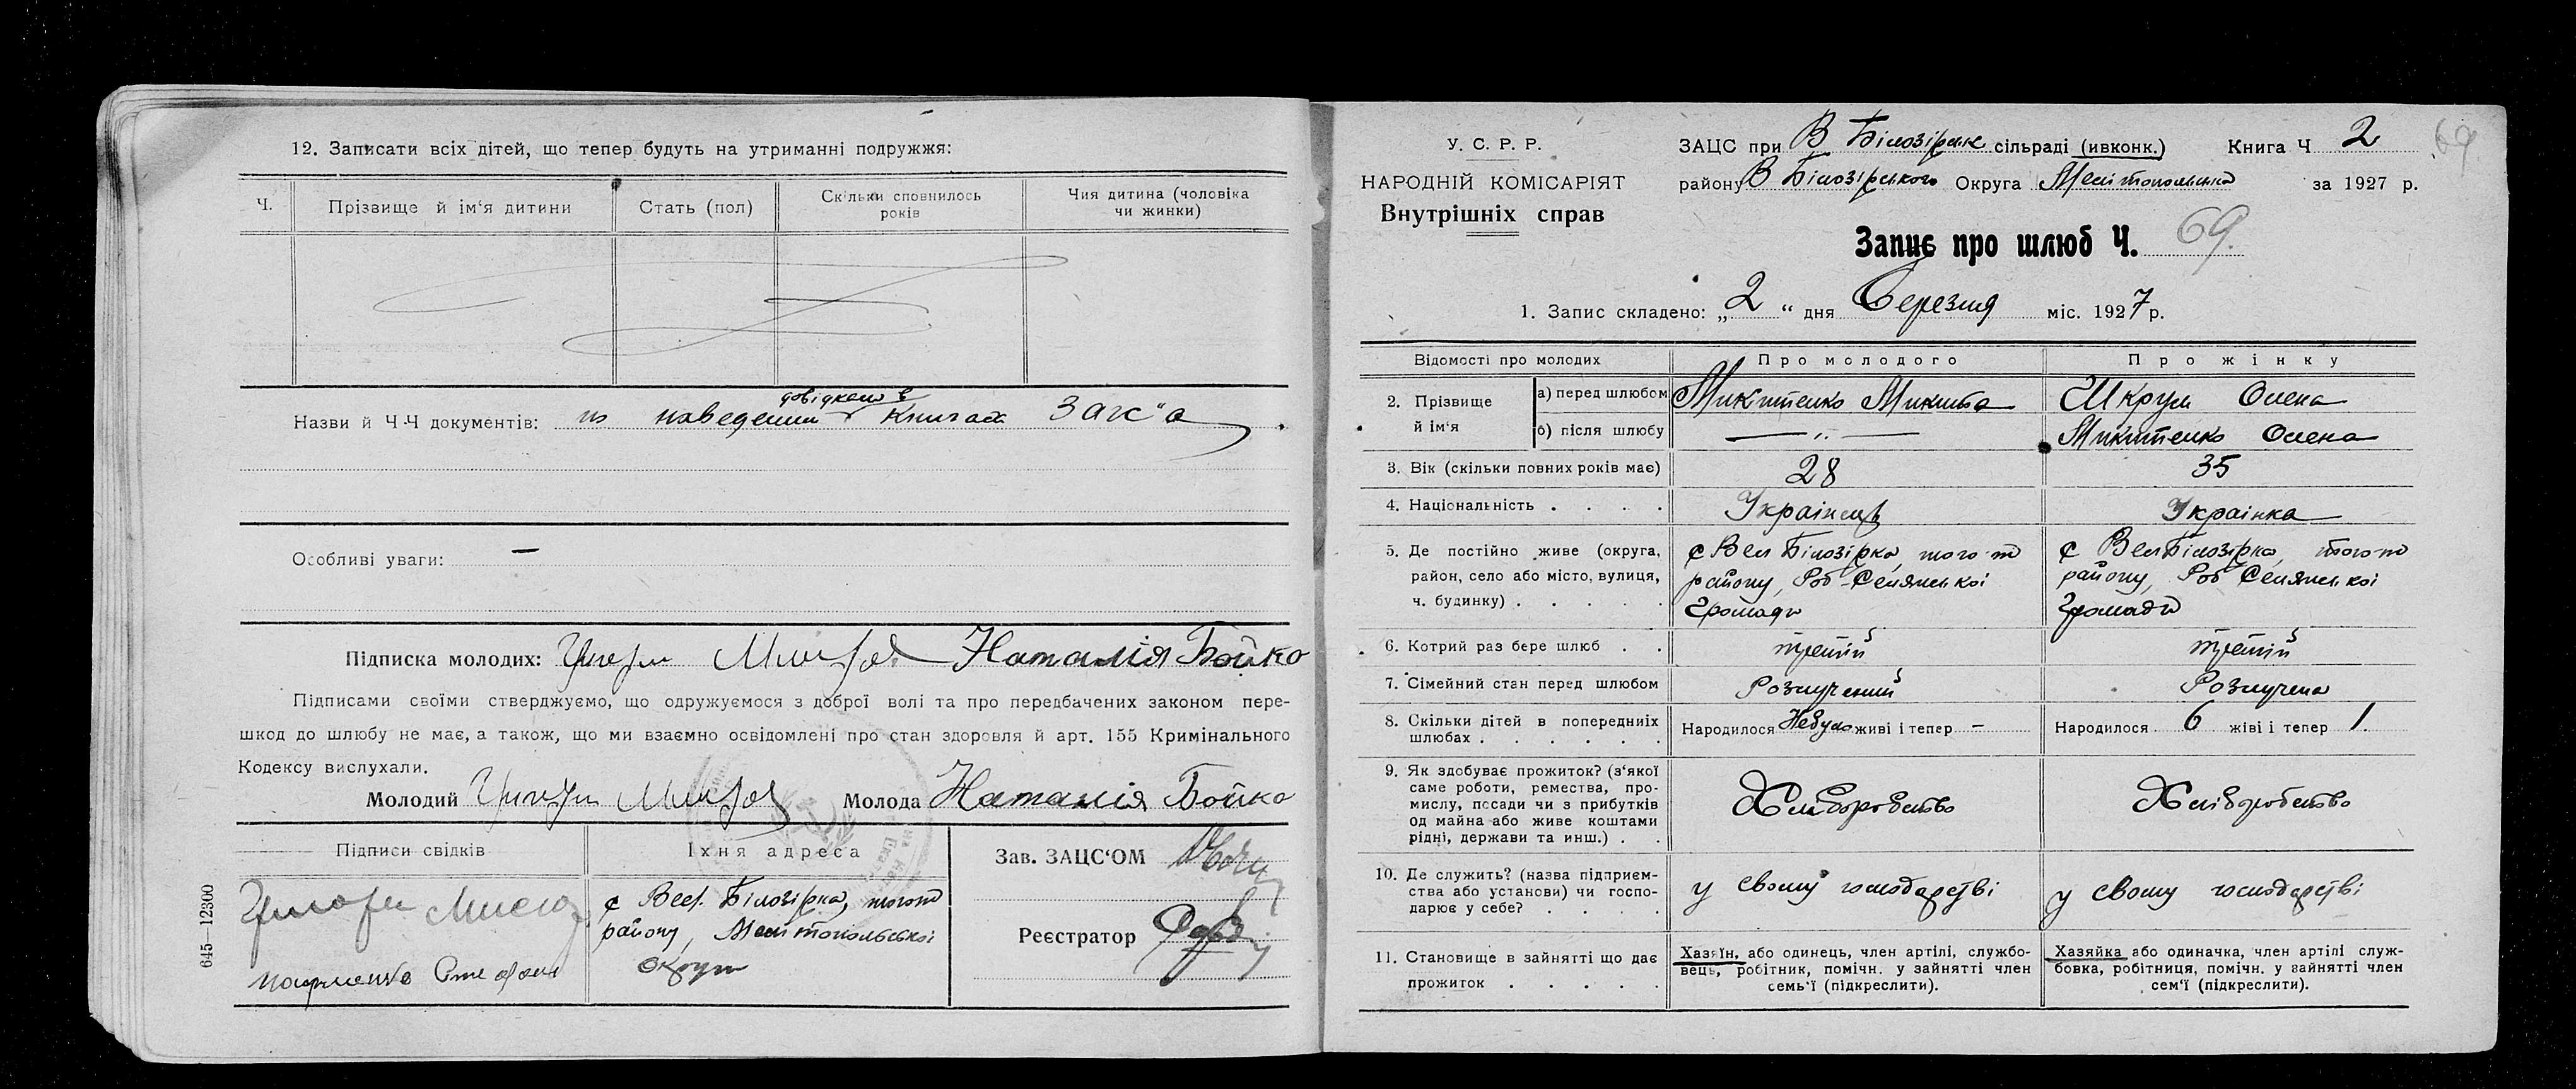 12. Записати всіх дітей, що тепер будуть на утриманні подружжя:
Ч.
Прізвище й ім‘я дитини
Стать (пол)
Скільки сповнилось
років
Чия дитина (чоловіка
чи жинки)
довідками в
Назви й Ч.Ч документів: наведеними книгах Загс"а
Особливі уваги: —
Підписка молодих: Наталія Бойко
Підписами своїми стверджуємо, що одружуємося з доброї волі та про передбачених законом пере-
шкод до шлюбу не має, а також, що ми взаємно освідомлені про стан здоровля й арт. 155 Кримінального
Кодексу вислухали.
Молодий Молода Наталія Бойко
Підписи свідків
Їхня адреса
с Вел. Білозірка, того-ж
району, Мелітопольської
Округи
Зав. ЗАЦС‘ОМ
Реєстратор
645—12300
У. С. Р. Р.
НАРОДНІЙ КОМІСАРІЯТ
Внутрішніх справ
ЗАЦС при В Білозірськ сільраді (ивконк.) Книга Ч 2
69
району В Білозірського Округа Мелітопольська за 1927 р.
Запис про шлюб Ч. 69.
1. Запис складено: „2“ дня Березня міс. 1927 р.
Відомості про молодих
Про молодого
Про жінку
2. Прізвище
й ім‘я
а) перед шлюбом
Микитенко Микита
Шкрум Олена
б) після шлюбу
—〃—
Микитенко Олена
3. Вік (скільки повних років має)
28
35
4. Національність . . . .
Українець
Українка
5. Де постійно живе (округа,
район, село або місто, вулиця,
ч. будинку) . . . . .
с Вел Білозірка, того-ж
району, Роб-Селянської
Громади
с Вел Білозірка, того-ж
району, Роб Селянської
Громади
6. Котрий раз бере шлюб . .
третій
третій
7. Сімейний стан перед шлюбом
Розлучений
Розлучена
8. Скільки дітей в попередниіх
шлюбах . . . . . .
Народилося Небуло живі і тепер —
Народилося 6 жіві і тепер 1.
9. Як здобуває прожиток? (з‘якої
саме роботи, ремества, про-
мислу, посади чи з прибутків
од майна або живе коштами
рідні, держави та инш.) . .
Хліборобство
Хліборобство
10. Де служить? (назва підприєм-
ства або установи) чи госпо-
дарює у себе? . . . .
у своему господарстві
у своему господарстві
11. Становище в зайнятті що дає
прожиток . . . . .
Хазяїн, або одинець, член артілі, службо-
вець, робітник, помічн. у зайнятті член
семь‘ї (підкреслити).
Хазяйка або одиначка, член артілі служ-
бовка, робітниця, помічн. у зайнятті член
сем‘ї (підкреслити).